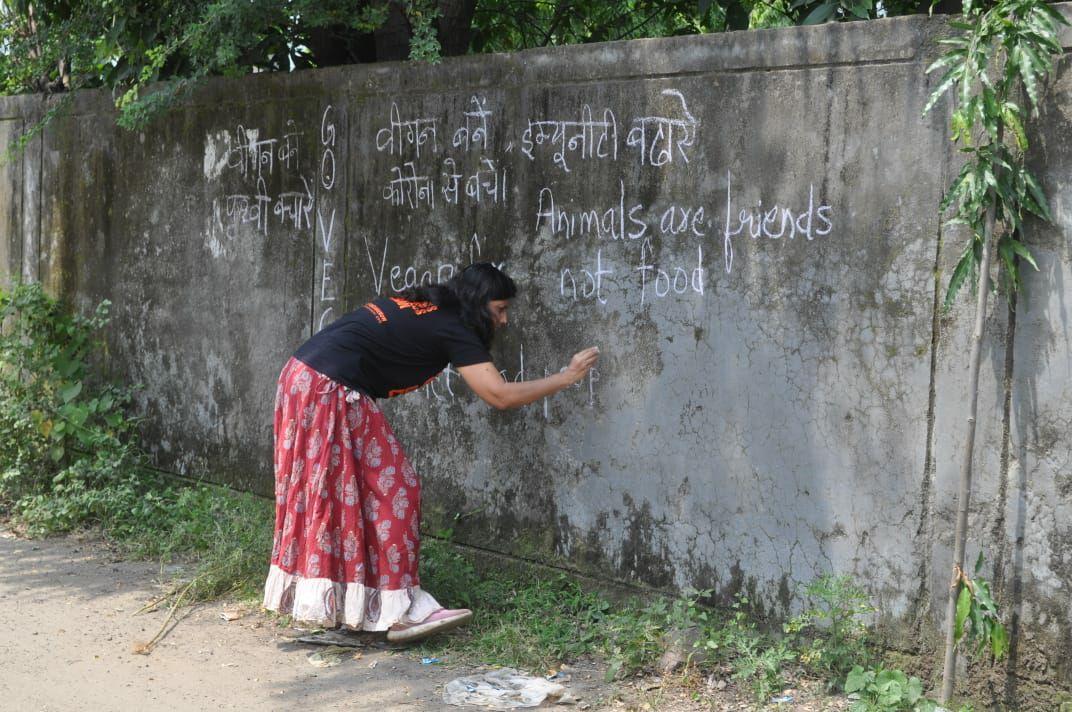 वीगन बने
पृथ्वी बचाये
GO VEG
वीगन बने , इम्यूनीटी बढाये
कोरोना से बचें।
Animals are friends
not food
Vegan